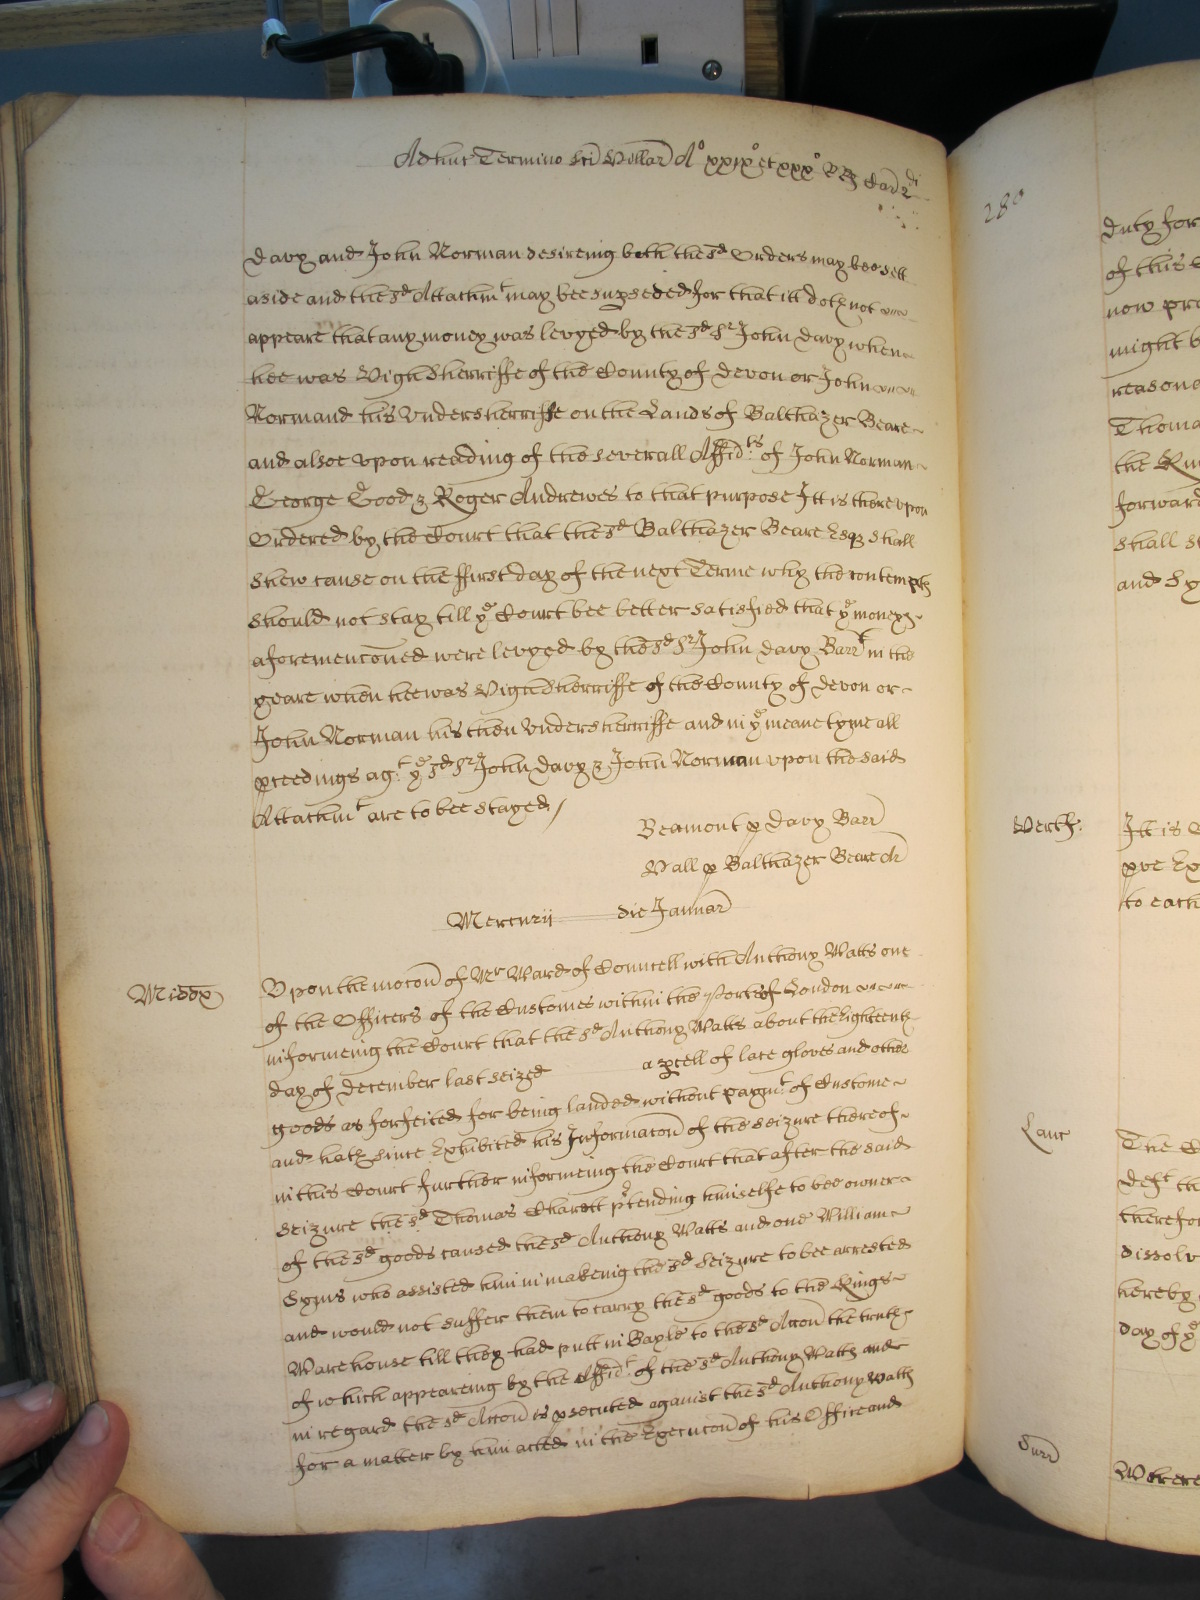 Adhuc Termino Sci Hillar A° xxix° et xxx° RRs Car 2di
Davy and John Norman desireing both the sd Orders may bee sett
aside and the sd Attachmt may bee supseded for that itt doth not
appeare that any money was levyed by the sd Sr John Davy when
hee was High Sherriffe of the County of Devon or John
Normand his Undersherriffe on the Lands of Balthazer Beare
and alsoe upon reading of the severall Affidts of John Norman
George Good & Roger Andrewes to that purpose Itt is thereupon
Ordered by the Court that the sd Balthazer Beare Esq shall
shew cause on the ffirst day of the next Terme why the contempts
should not stay till ye Court bee better satisfied that ye moneys
aforemenconed were levyed by the sd Sr John Davy Barrt in the
yeare when hee was High Sherriffe of the County of Devon or
John Norman his then Undersherriffe and in ye meane tyme all
pceedings agt ye sd Sr John Davy & John Norman upon the said
Attachmt are to bee stayed /
Beamont p Davy Barr
Hall p Balthazer Beare Ar
Mercurii die Januar
Middx
Upon the mocon of Mr Ward of Councell with Anthony Watts one
of the Officers of the Customes within the Port of London
informeing the Court that the sd Anthony Watts about the Eighteenth
day of December last seized a pcell of lace gloves and other
goods as forfeited for being landed without paymt of Custome
and hath since Exhibited his Informacon of the seizure thereof
in this Court further informeing the Court that after the said
seizure the sd Thomas pretending himselfe to bee owner
of the sd goods caused the sd Anthony Watts and one William
Syms who assisted him in makeing the sd seizure to bee arrested
and would not suffer them to carry the sd goods to the Kings
Warehouse till they had putt in Bayle to the sd Accon the truth
of which appeareing by the Affidt of the sd Anthony Watts and
in regard the sd Accon is psecuted against the sd Anthony Watts
for a matter by him acted in the Execucon of his Office and
280
duty for
of this
now pro
might b
reasona
Thoma
the Kin
forward
shall st
and Sy
Herts:
Itt is O
to each
Lanc
The
Deft th
therefor
dissolv
hereby
day of ye
Surr
Where